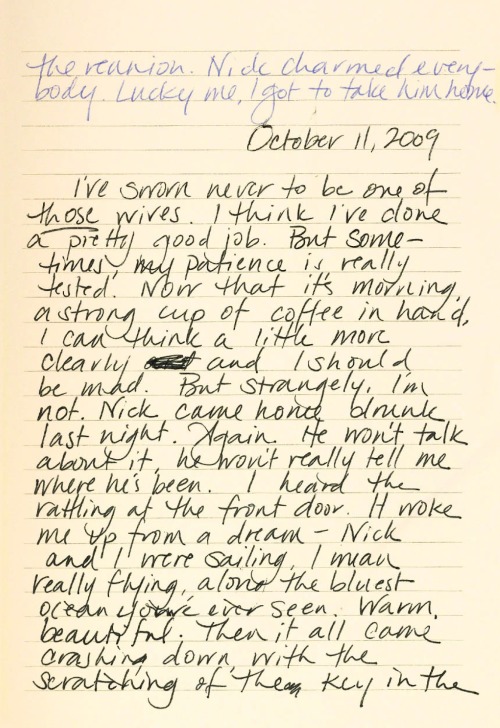 the reunion. Nick charmed every-
body. Lucky me, I got to take him home.
October 11, 2009
I've sworn never to be one of
those wives. I think I've done
a pretty good job. But some-
times, my patience is really
tested. Now that it's morning,
a strong cup of coffee in hand,
I can think a little more
clearly and I should
be mad. But strangely, I'm
not. Nick came home drunk
last night. Again. He won't talk
about it, he won't really tell me
where he's been. I heard the
rattling at the front door. It woke
me up from a dream – Nick
and I were sailing, I mean
really flying, along the bluest
ocean you've ever seen. Warm,
beautiful. Then it all came
crashing down with the
scratching of the key in the